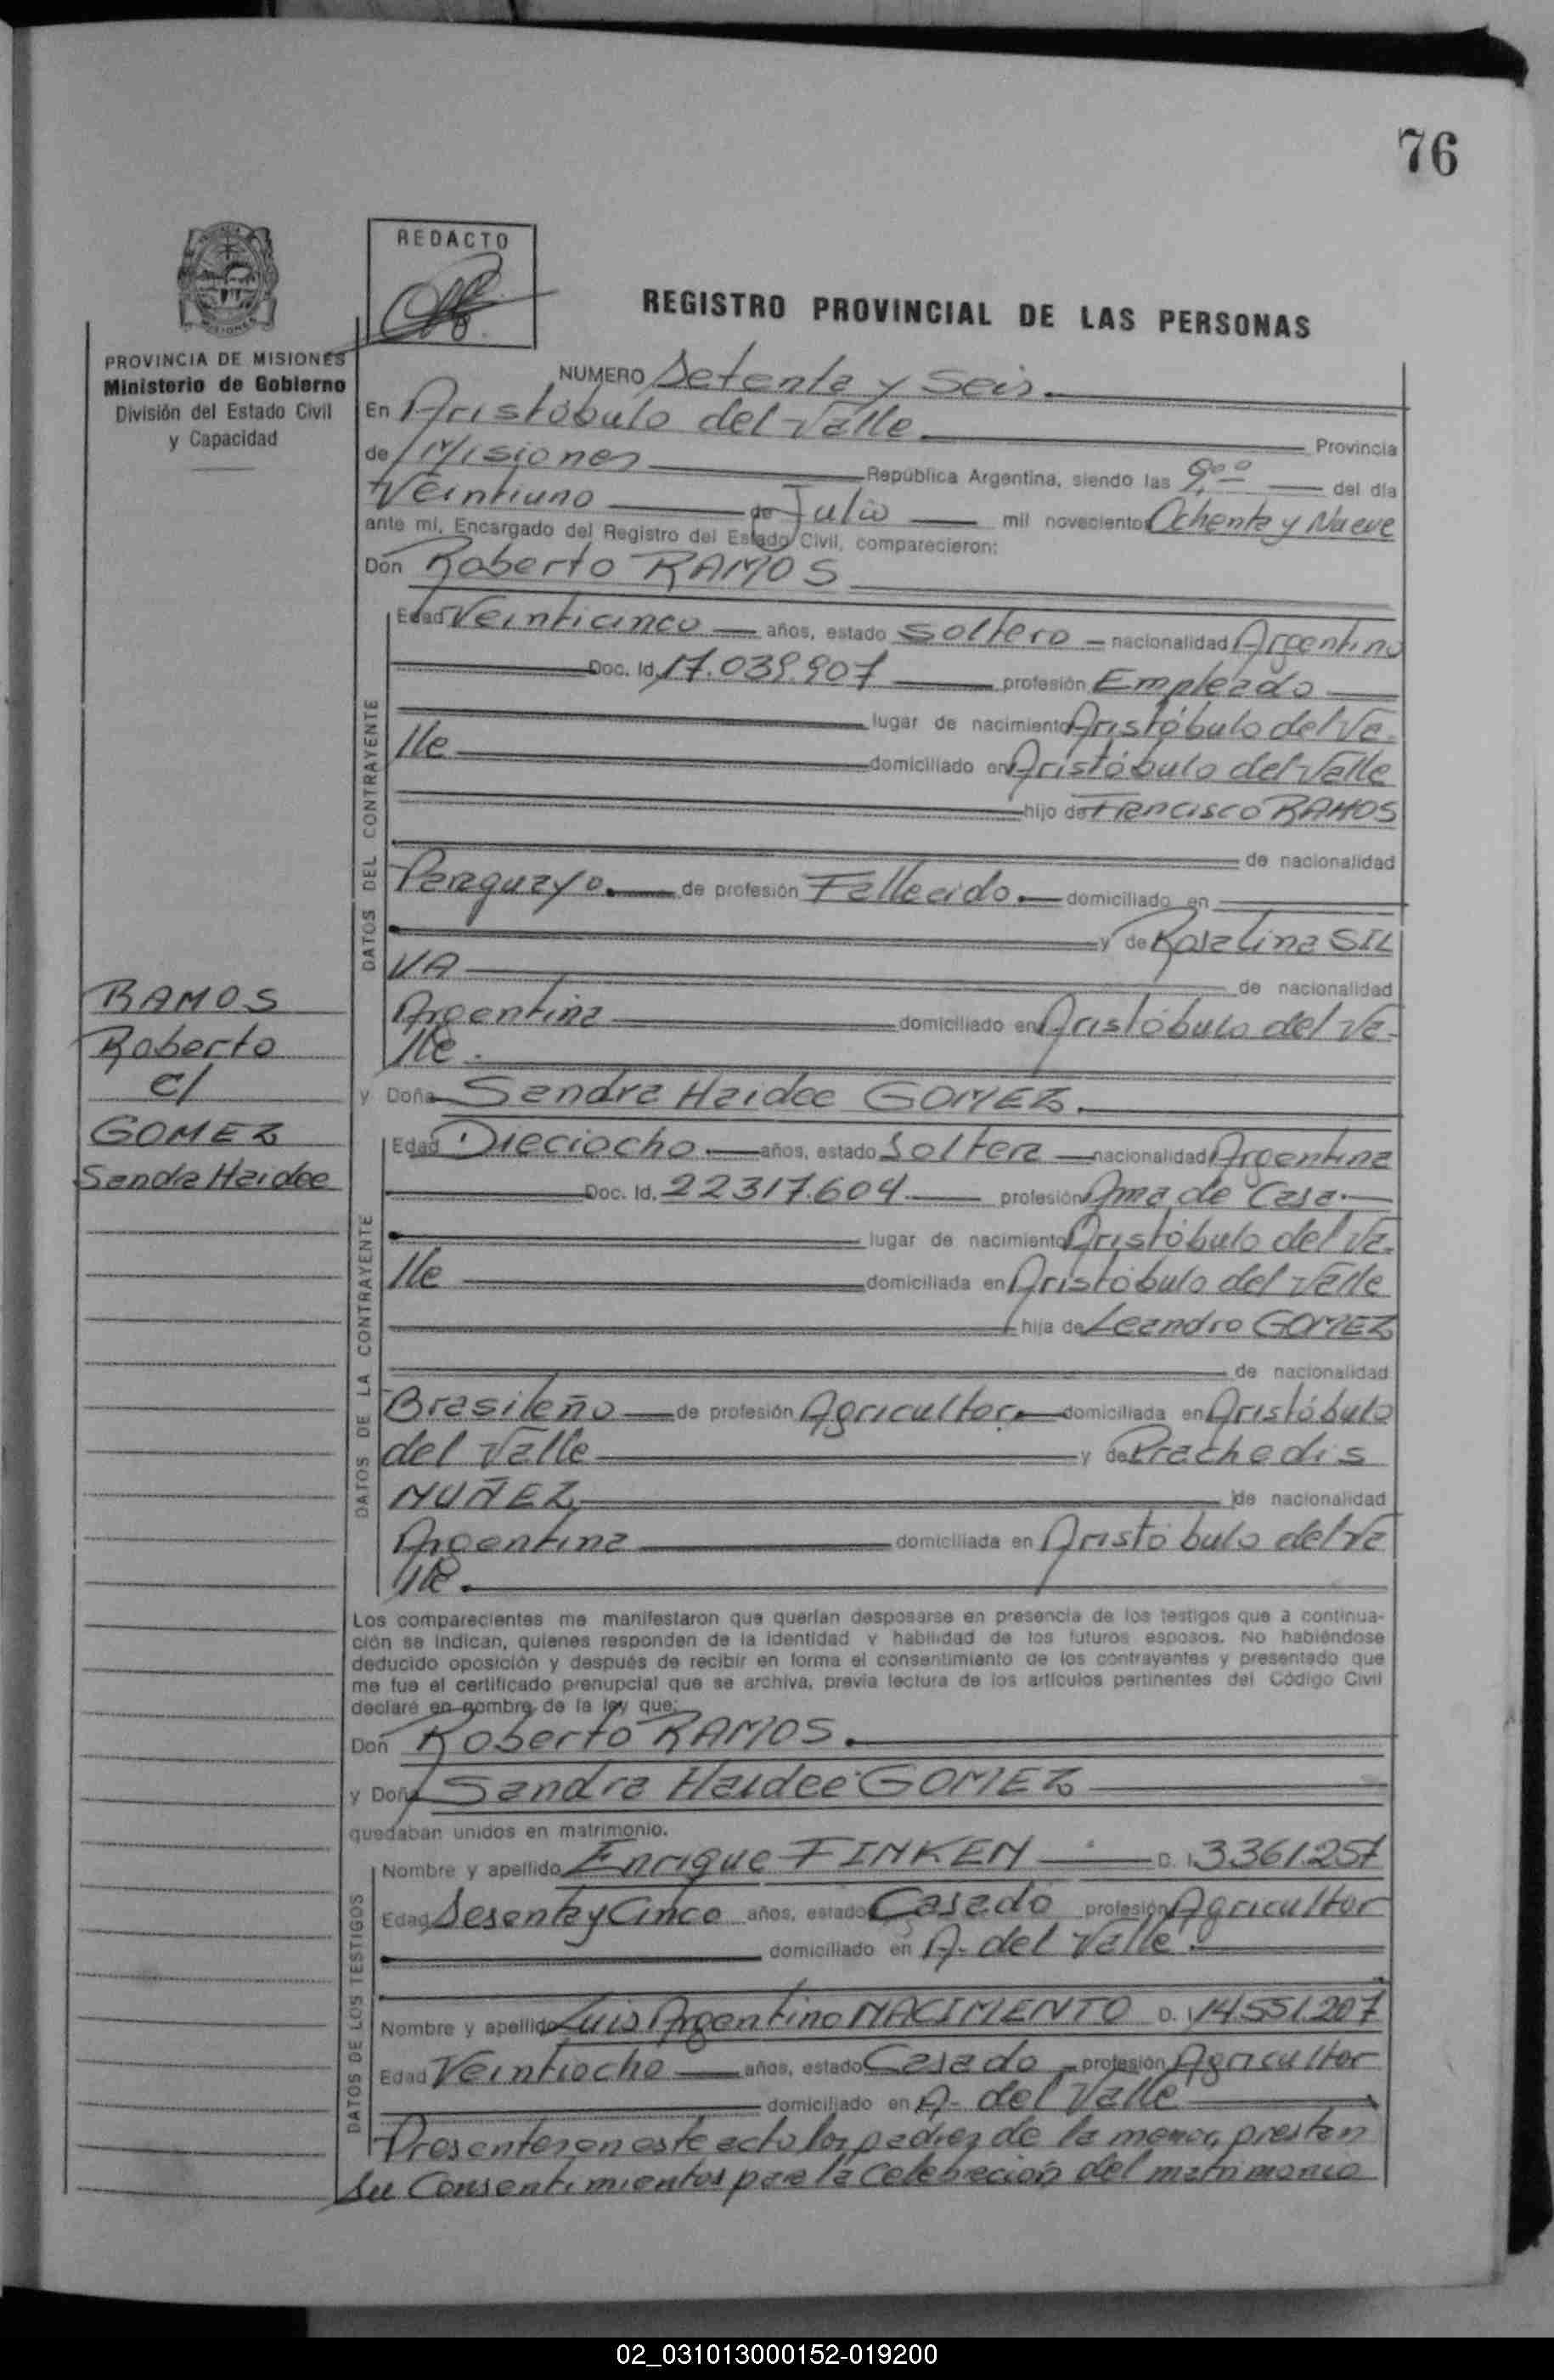 76
REDACTO
REGISTRO PROVINCIAL DE LAS PERSONAS
PROVINCIA DE MISIONES
Ministerio de Gobierno
División del Estado Civil
y Capacidad
NUMERO Setenta y Seis.
En Aristóbulo del Valle Provincia
de Misiones República Argentina, siendo las 9,00 del día
Veintiuno de Julio mil novecientos Ochenta y Nueve
ante mí, Encargado del Registro del Estado Civil, comparecieron:
Don Roberto RAMOS
DATOS DEL CONTRAYENTE
Edad Veinticinco años, estado Soltero nacionalidad Argentino
Doc. Id. 17.039.907 profesión Empleado
lugar de nacimiento Aristóbulo del Va-
lle domiciliado en Aristóbulo del Valle
hijo de Francisco RAMOS
de nacionalidad
Paraguayo de profesión Fallecido. domiciliado en
y de Rosalina SIL
VA
de nacionalidad
Argentina domiciliado en Aristóbulo del Va-
lle.
y Doña Sandra Haidee GOMEZ.
RAMOS
Roberto
c/
GOMEZ
Sandra Haidee
DATOS DE LA CONTRAYENTE
Edad Dieciocho años, estado Soltera nacionalidad Argentina
Doc. Id. 22317.604 profesión Ama de Casa.
lugar de nacimiento Aristóbulo del Va-
lle domiciliada en Aristóbulo del Valle
hija de Leandro GOMEZ
de nacionalidad
Brasileño de profesión Agricultor. domiciliada en Aristóbulo
del Valle y de Prachedis
NUÑEZ de nacionalidad
Argentina domiciliada en Aristóbulo del Va
lle.
Los comparecientes me manifestaron que querían desposarse en presencia de los testigos que a continua-
ción se indican, quienes responden de la identidad y habilidad de los futuros esposos. No habiéndose
deducido oposición y después de recibir en forma el consentimiento de los contrayentes y presentado que
me fue el certificado prenupcial que se archiva, previa lectura de los artículos pertinentes del Código Civil
declaré en nombre de la ley que:
Don Roberto RAMOS.
y Doña Sandra Haidee GOMEZ
quedaban unidos en matrimonio.
DATOS DE LOS TESTIGOS
Nombre y apellido Enrique FINKEN D. I. 3.361.257
Edad Sesenta y Cinco años, estado Casado profesión Agricultor
domiciliado en A. del Valle.
Nombre y apellido Luis Argentino NACIMENTO D. I. 14.551.207
Edad Veintiocho años, estado Casado profesión Agricultor
domiciliado en A- del Valle
Presentes en este acto los padres de la menor, prestan
su Consentimientos para la Celebración del matrimonio
02_031013000152-019200